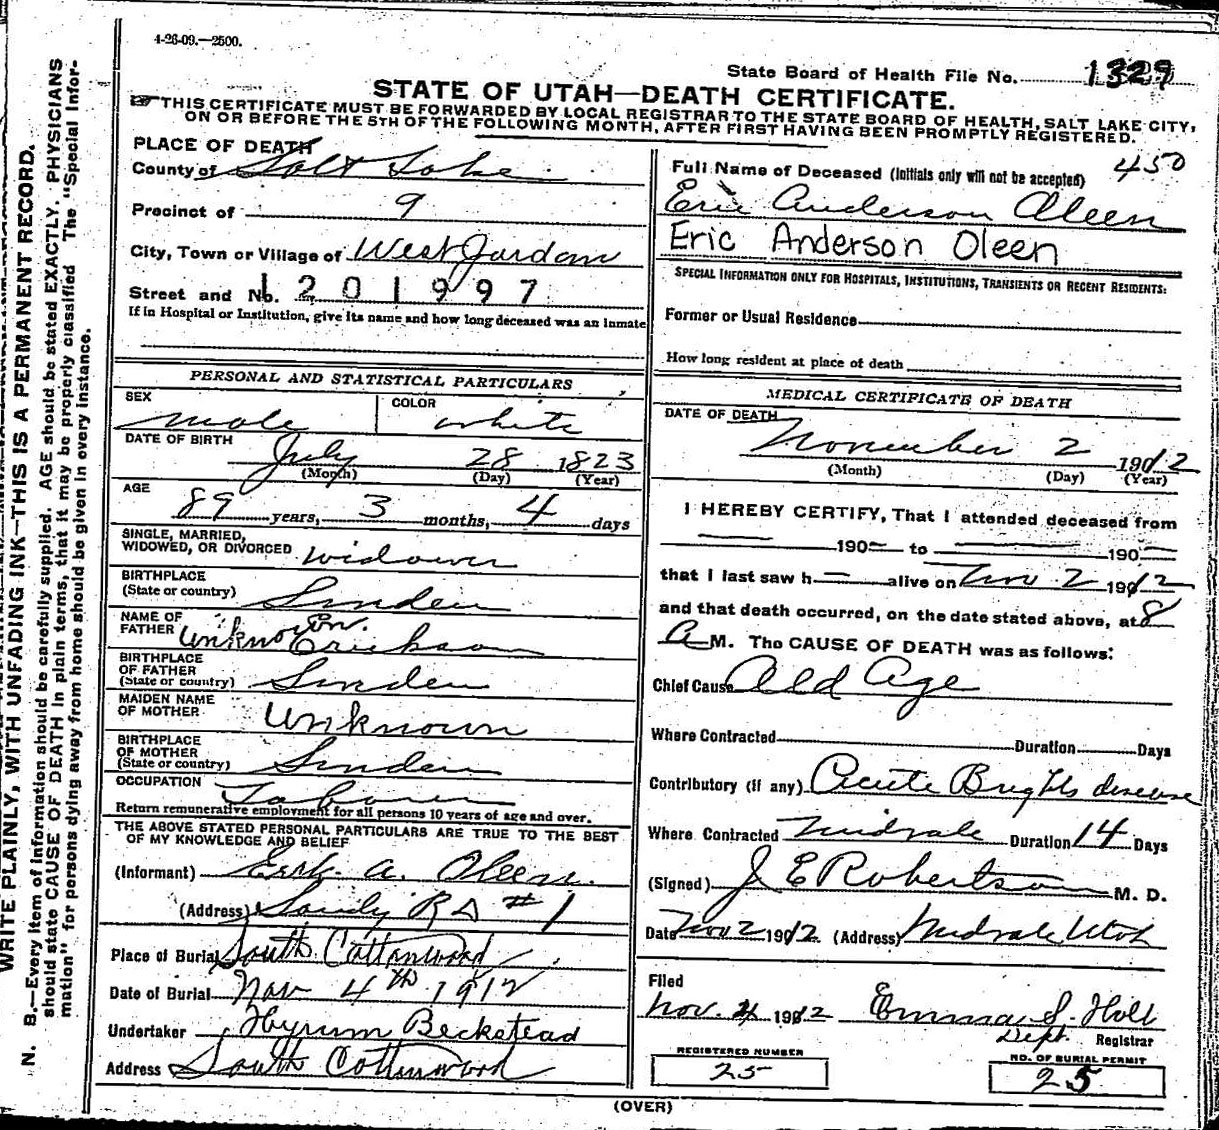 4-26-09.—2500.
State Board of Health File No. 1329
STATE OF UTAH—DEATH CERTIFICATE.
THIS CERTIFICATE MUST BE FORWARDED BY LOCAL REGISTRAR TO THE STATE BOARD OF HEALTH, SALT LAKE CITY,
ON OR BEFORE THE 5TH OF THE FOLLOWING MONTH, AFTER FIRST HAVING BEEN PROMPTLY REGISTERED.
PLACE OF DEATH
County of Salt Lake
Precinct of 9
City, Town or Village of West Jordan
Street and No. 1201997
If in Hospital or Institution, give its name and how long deceased was an inmate
PERSONAL AND STATISTICAL PARTICULARS
SEX male COLOR white
DATE OF BIRTH July 28 1823
(Month) (Day) (Year)
AGE 89 years, 3 months, 4 days
SINGLE, MARRIED,
WIDOWED, OR DIVORCED widower
BIRTHPLACE
(State or country) Sweden
NAME OF
FATHER unknown Erickson
BIRTHPLACE
OF FATHER
(State or country) Sweden
MAIDEN NAME
OF MOTHER unknown
BIRTHPLACE
OF MOTHER
(State or country) Sweden
OCCUPATION Laborer
Return remunerative employment for all persons 10 years of age and over.
THE ABOVE STATED PERSONAL PARTICULARS ARE TRUE TO THE BEST
OF MY KNOWLEDGE AND BELIEF
(Informant) Erik. A. Oleen.
(Address) Sandy R D #1
Place of Burial South Cottonwood
Date of Burial Nov 4th 1912
Undertaker Hyrum Beckstead
Address South Cottonwood
450
Full Name of Deceased (Initials only will not be accepted)
Eric Anderson Oleen
Eric Anderson Oleen
SPECIAL INFORMATION ONLY FOR HOSPITALS, INSTITUTIONS, TRANSIENTS OR RECENT RESIDENTS:
Former or Usual Residence
How long resident at place of death
MEDICAL CERTIFICATE OF DEATH
DATE OF DEATH
November 2 1912
(Month) (Day) (Year)
I HEREBY CERTIFY, That I attended deceased from
190 to 190
that I last saw h alive on Nov 2 1912
and that death occurred, on the date stated above, at 8
A M. The CAUSE OF DEATH was as follows:
Chief Cause Old Age
Where Contracted Duration Days
Contributory (if any) Acute Brights disease
Where Contracted Midvale Duration 14 Days
(Signed) J E Robertson M. D.
Date Nov 2 1912 (Address) Midvale Utah
Filed
Nov. 4 1912 Emma S. Holt
Dept. Registrar
REGISTERED NUMBER
25
NO. OF BURIAL PERMIT
25
(OVER)
WRITE PLAINLY, WITH UNFADING INK—THIS IS A PERMANENT RECORD.
N. B.—Every item of information should be carefully supplied. AGE should be stated EXACTLY. PHYSICIANS
should state CAUSE OF DEATH in plain terms, that it may be properly classified The "Special Infor-
mation" for persons dying away from home should be given in every instance.